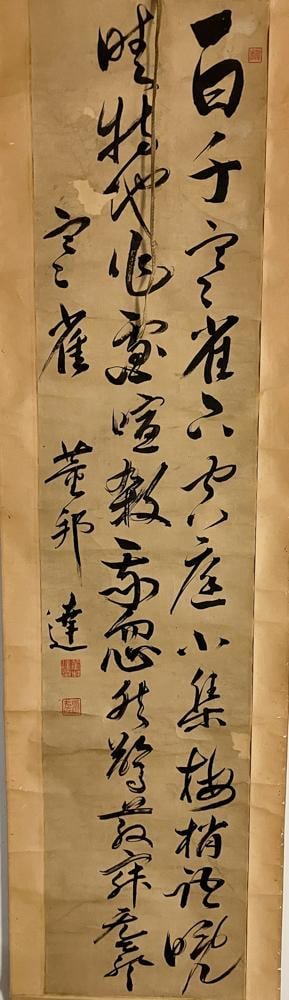 百千寒雀下空庭小集梅梢話晚
晴特地作團喧殺我忽然驚散寂無聲
寒雀 董邦達